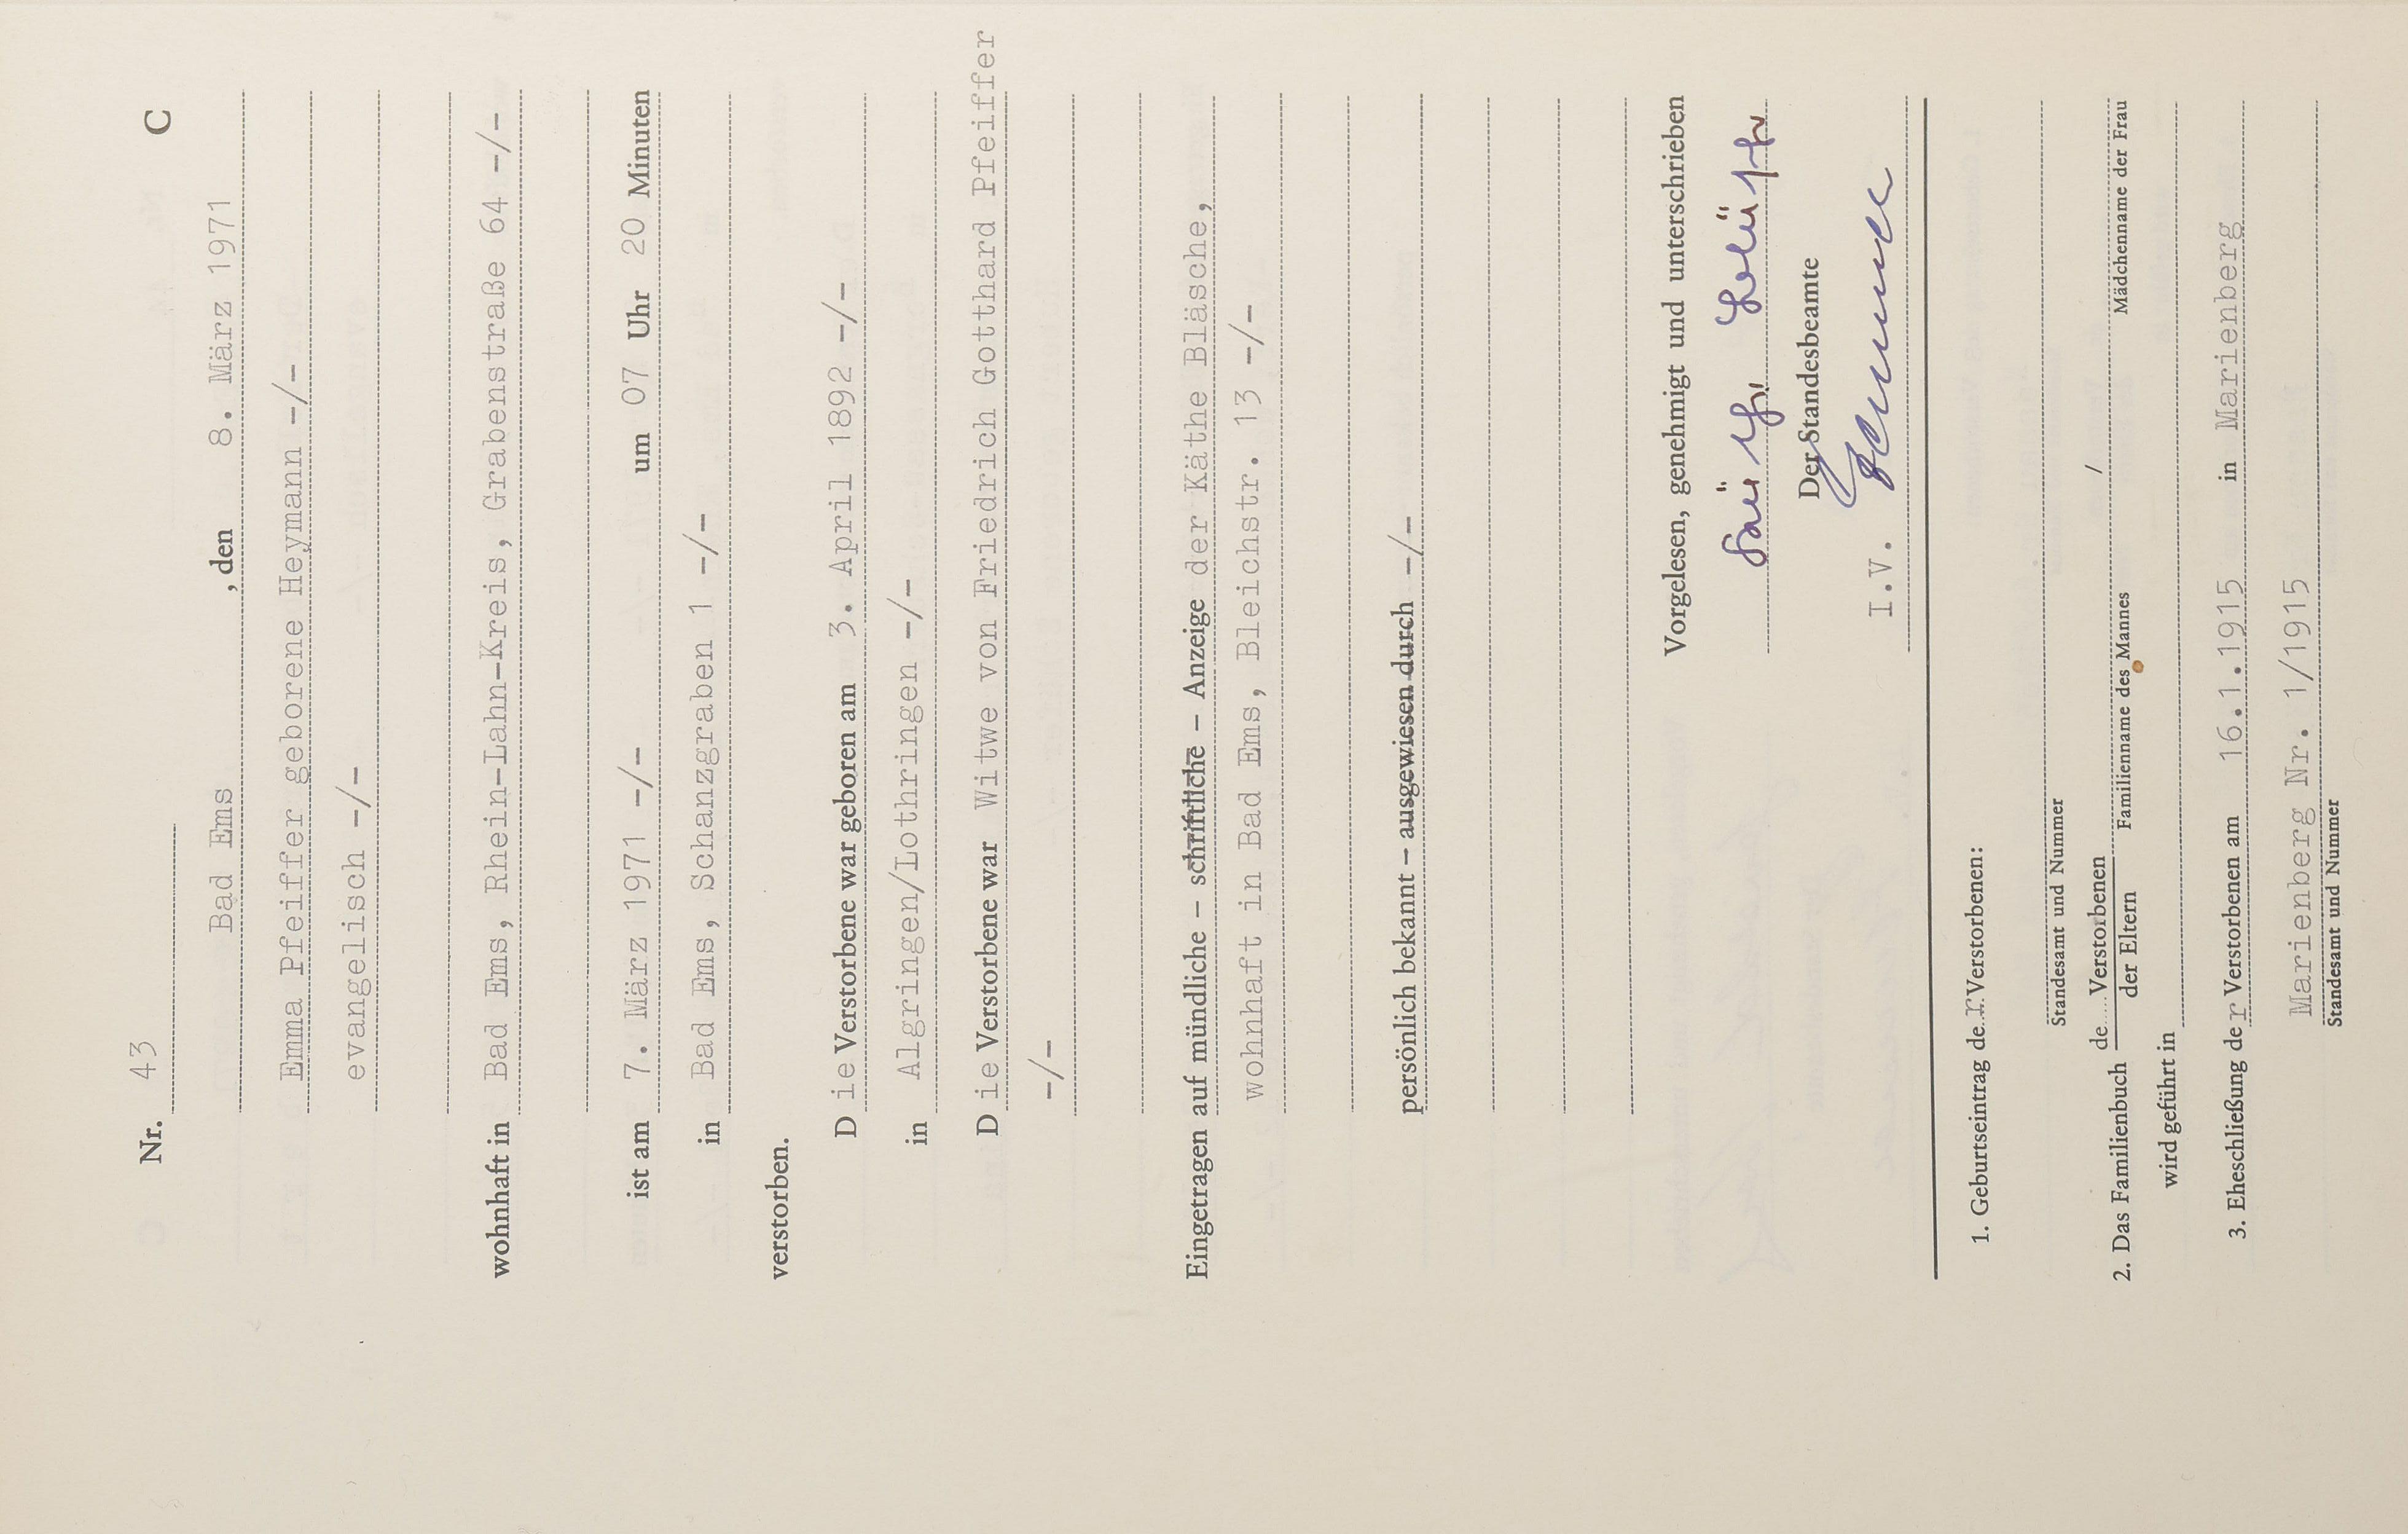 Nr. 43 C
Bad Ems , den 8. März 1971
Emma Pfeiffer geborene Heymann -/-
evangelisch -/-
wohnhaft in Bad Ems, Rhein-Lahn-Kreis, Grabenstraße 64 -/-
ist am 7. März 1971 -/- um 07 Uhr 20 Minuten
in Bad Ems, Schanzgraben 1 -/-
verstorben.
D ie Verstorbene war geboren am 3. April 1892 -/-
in Algringen/Lothringen -/-
D ie Verstorbene war Witwe von Friedrich Gotthard Pfeiffer
-/-
Eingetragen auf mündliche – schriftliche – Anzeige der Käthe Bläsche,
wohnhaft in Bad Ems, Bleichstr. 13 -/-
persönlich bekannt – ausgewiesen durch -/-
Vorgelesen, genehmigt und unterschrieben
Der Standesbeamte
I.V.
1. Geburtseintrag der Verstorbenen:
Standesamt und Nummer
2. Das Familienbuch de.... Verstorbenen / der Eltern /
Familienname des Mannes Mädchenname der Frau
wird geführt in
3. Eheschließung der Verstorbenen am 16.1.1915 in Marienberg
Marienberg Nr. 1/1915
Standesamt und Nummer